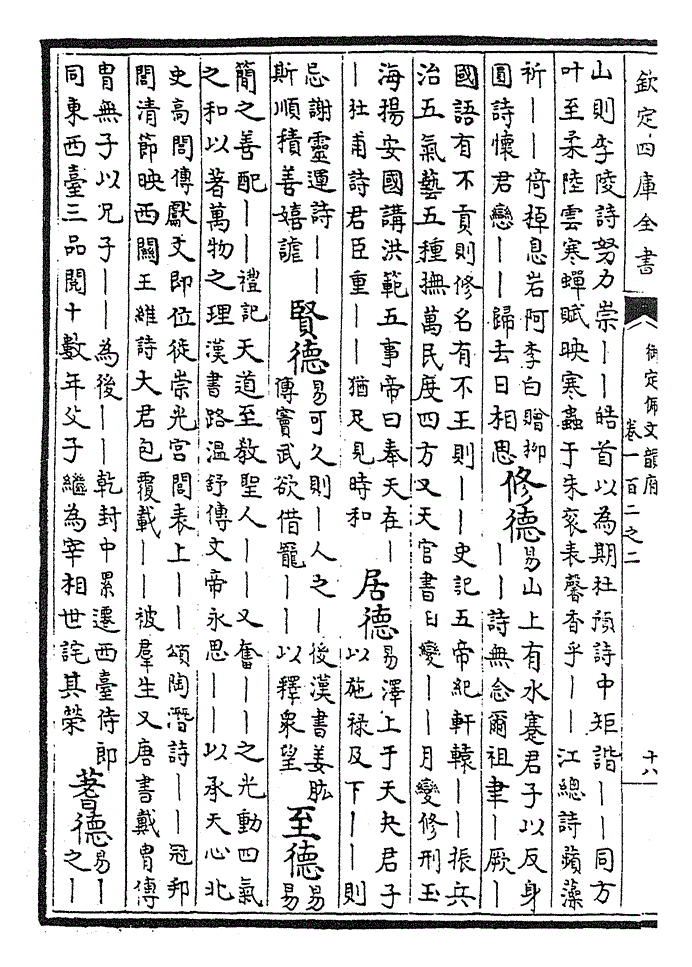 欽定四庫全書
御定佩文韻府
卷一百二之二
十八
山則李陵詩努力崇丨丨皓首以為期杜預詩中矩諧丨丨同方
叶至柔陸雲寒蟬賦映寒蟲于朱袞表馨香乎丨丨江總詩蘋藻
祈丨丨倚棹息岩阿李白贈柳
圓詩懷君戀丨丨歸去日相思
修德
易山上有水蹇君子以反身
丨丨詩無念爾祖聿丨厥丨
國語有不貢則修名有不王則丨丨史記五帝紀軒轅丨丨振兵
治五氣藝五種撫萬民度四方又天官書日變丨丨月變修刑玉
海揚安國講洪範五事帝曰奉天在丨
丨杜甫詩君臣重丨丨猶足見時和
居德
易澤上于天夬君子
以施祿及下丨丨則
忌謝靈運詩丨丨
斯順積善嬉謔
賢德
易可久則丨人之丨後漢書姜肱
傳竇武欲借寵丨丨以釋衆望
至德
易
易
簡之善配丨丨禮記天道至教聖人丨丨又奮丨丨之光動四氣
之和以著萬物之理漢書路溫舒傳文帝永思丨丨以承天心北
史高閭傳獻文即位徙崇光宮閭表上丨丨頌陶潛詩丨丨冠邦
閭清節映西關王維詩大君包覆載丨丨被羣生又唐書戴胄傳
胄無子以兄子丨丨為後丨丨乾封中累遷西臺侍郎
同東西臺三品閱十數年父子繼為宰相世詫其榮
蓍德
易丨
之丨